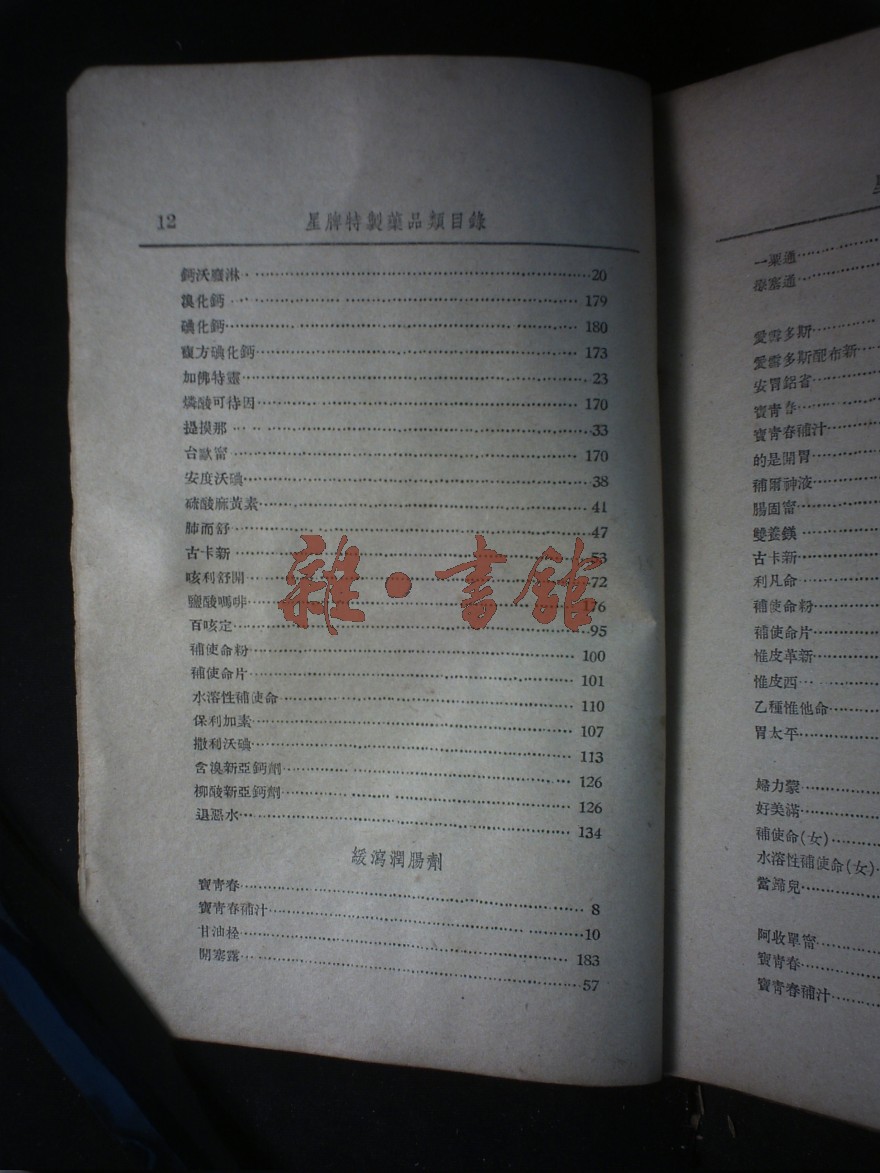 12 星牌特製藥品類目錄
鈣沃靈淋 20
溴化鈣 179
碘化鈣 180
複方碘化鈣 173
加佛特靈 23
燐酸可待因 170
提摸那 33
台歐甯 170
安度沃碘 38
硫酸麻黃素 41
肺而舒 47
古卡新 53
咳利舒開 72
鹽酸嗎啡 176
百咳定 95
補使命粉 100
補使命片 101
水溶性補使命 110
保利加素 107
撒利沃碘 113
含溴新亞鈣劑 126
柳酸新亞鈣劑 126
退惡水 134
緩瀉潤腸劑
寶青春 8
寶青春補汁 10
甘油栓 183
開塞露 57
雜·書館
一粟通
療塞通
愛雪多斯
愛雪多斯配布新
安胃鋁省
寶青春
寶青春補汁
的是開胃
補爾神液
腸固甯
雙養鎂
古卡新
利凡命
補使命粉
補使命片
惟皮革新
惟皮西
乙種惟他命
胃太平
婦力蒙
好美滿
補使命(女)
水溶性補使命(女)
當歸兒
阿收單甯
寶青春
寶青春補汁